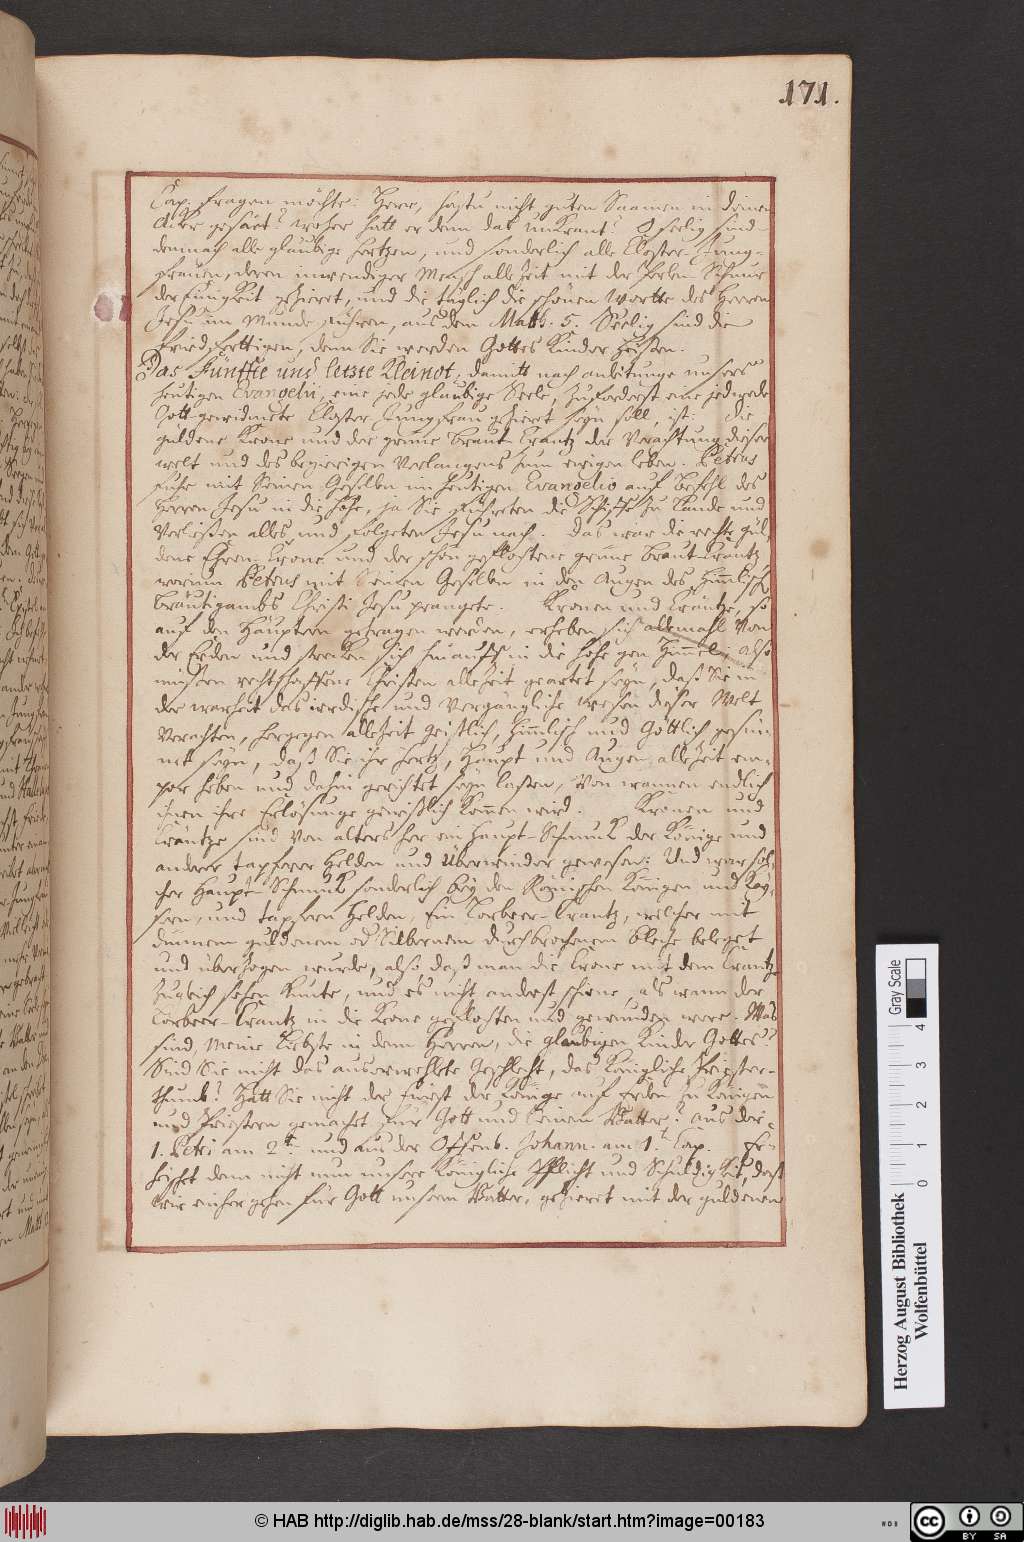 171.
Cap. fragen möchte: Herr, hastu nicht guten Saamen in deinen
Acker gesäet? woher hatt er denn das unkraut? O seelig sind
demnach alle gläubige Hertzen, und sonderlich alle Closter-Jung-
frauen, deren inwendiger Mensch alle Zeit mit der Perlen-Schnur
der Einigkeit gezieret, und die täglich die schönen Wortte des Herren
Jesu im Munde führen, aus dem Matth. 5. Seelig sind die
Friedfertigen, denn Sie werden Gottes Kinder heißen.
Das Fünffte und letzte Kleinot, damitt nach anleitunge unsers
heutigen Evangelii, eine jede gläubige Seele, zuforderst eine jedwede
Gott-gewidmete Closter-Jungfrau gezieret seyn soll, ist: die
güldene Krone und der grüne Braut-Crantz der Verachtung dieser
welt und des begierigen Verlangens zum ewigen leben. Petrus
fuhr mit seinen Gesellen im heutigen Evangelio auf Befehl des
Herren Jesu in die Höhe, ja Sie führeten die Schiffe zu Lande und
Verließen alles, und folgeten Jesu nach. Das war die rechte gül-
dene Ehren-Crone und der schön geflochtene grüne Braut-Crantz
worinn Petrus mit seinen Gesellen in den Augen des Himmlischen
Bräutigambs Christi Jesu prangete. Kronen und Cräntze, so
auf den Häuptern getragen werden, erheben sich allemahl Von
der Erden und strecken sich hinauff in die höhe gen Himmel; also
müssen rechtschaffene Christen allezeit geartet seyn, daß Sie in
der warheit das irrdische und Vergängliche wesen dieser Welt
Verachten, hergegen allezeit geistlich, himmlisch und Göttlich gesin-
net seyn, daß Sie ihr Hertz, Haupt und Augen allezeit em-
por heben und dahin gerichtet seyn lassen, Von wannen endlich
ihnen ihre Erlösunge gewißlich kommen wird. Kronen und
Cräntze sind Von alters her ein Haupt-Schmuck der Könige und
anderer tapferer Helden und Überwinder gewesen: Und war sol-
cher Haupt-Schmuck sonderlich bey den Römischen Königen und Kay-
sern, und tapfern Helden, Ein Lorbeer-Crantz, welcher mit
dünnem güldenem od Silbernem durchbrochenem bleche beleget
und überzogen wurde, also daß man die Crone mit dem Crantz
zugleich sehen kunte, und es nicht anderst schiene, als wann der
Lorbeer-Crantz in die Krone geflochten und gewunden were. Was
sind, Meine Liebste in dem Herren, die gläubigen Kinder Gottes?
Sind Sie nicht das auserwehlete Geschlecht, das Königliche Priester-
thumb? Hatt Sie nicht der Fürst der Könige auf Erden zu Königen
und Priestern gemachet für Gott und seinem Vatter? aus der
1. Petri am 2 und aus der Offenb. Johann. am 1. Cap. Er-
heischet denn nicht nun unsere Königliche Pflicht und Schuldigkeit, daß
wir einher gehen für Gott unserm Vatter, gezieret mit der güldenen
Herzog August Bibliothek
Wolfenbüttel
Gray Scale
0 1 2 3 4
© HAB http://diglib.hab.de/mss/28-blank/start.htm?image=00183
WDB
CC BY SA